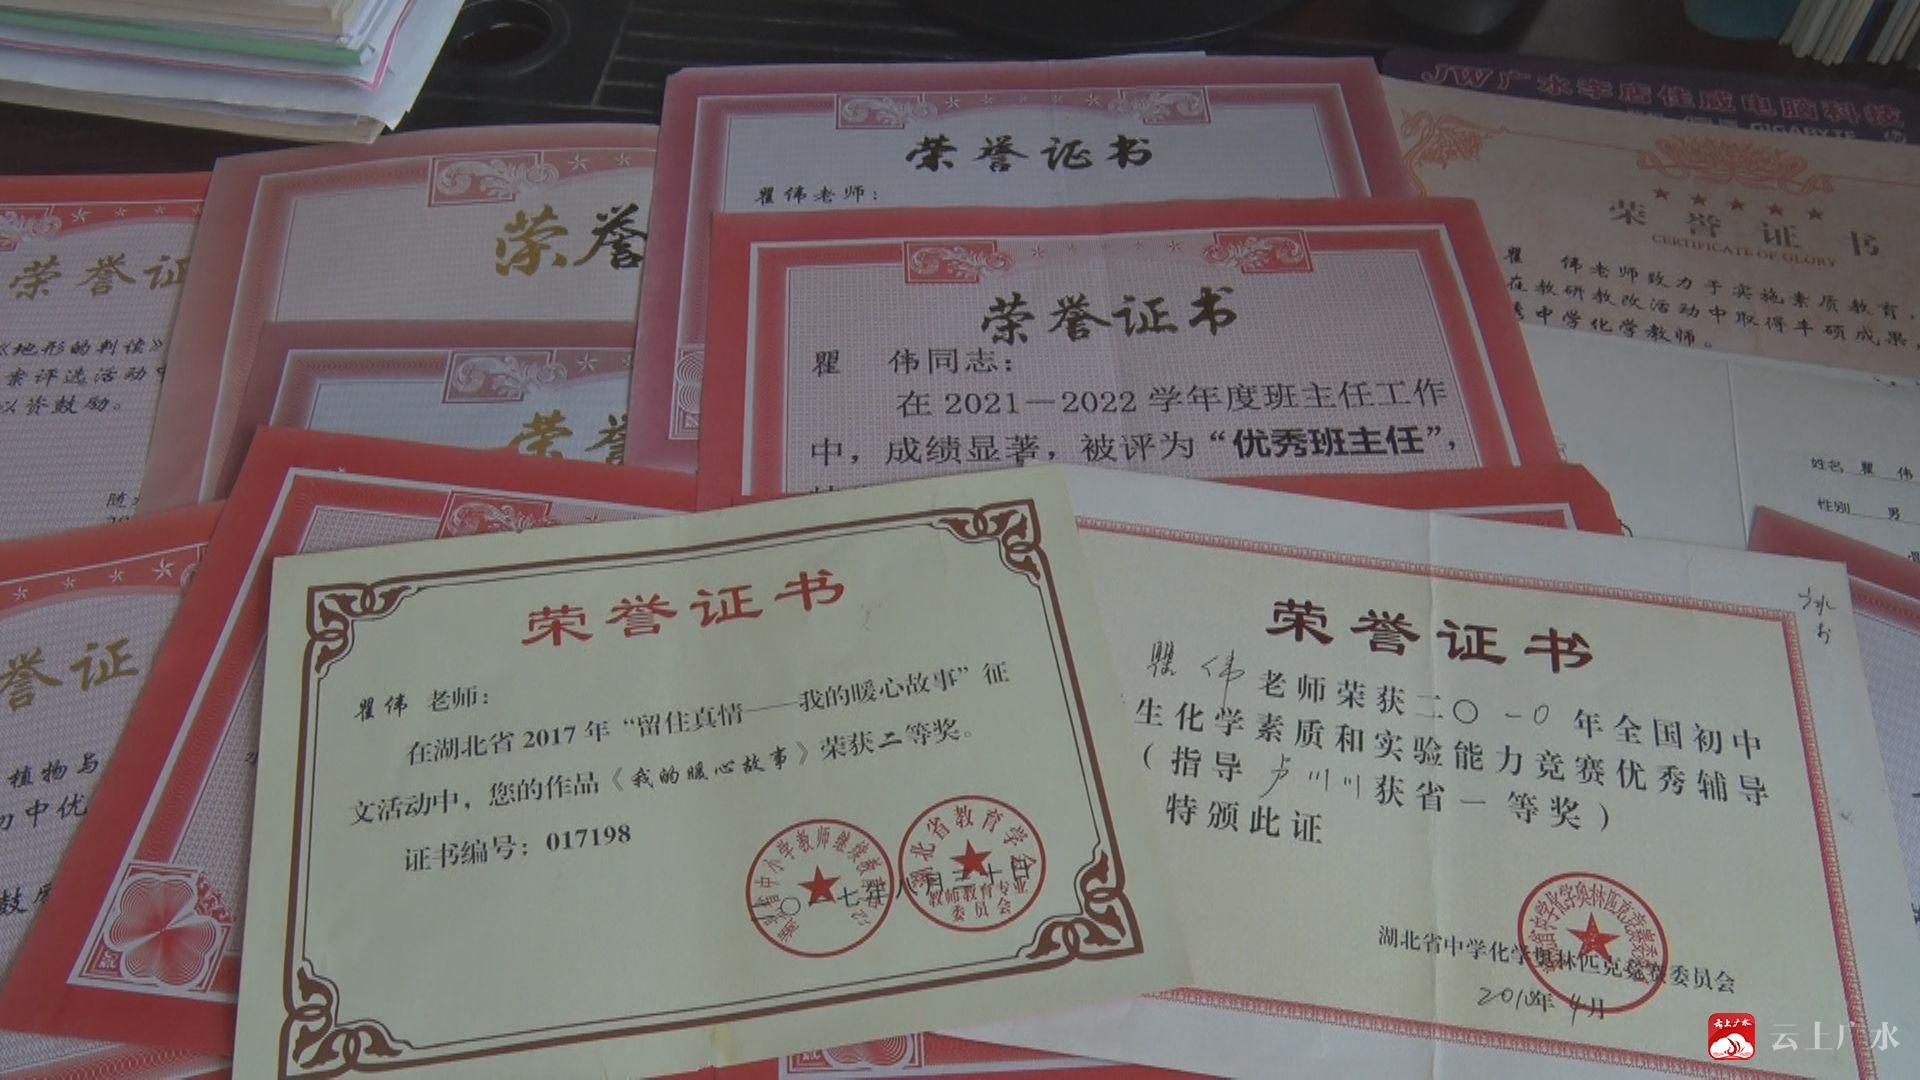 JW广水李店佳威电脑科技
荣誉证书
瞿伟老师：
荣誉证书
CERTIFICATE OF GLORY
瞿 伟老师致力于实施素质教育，
在教研教改活动中取得丰硕成果
中学化学教师。
荣誉证
《地形的判读》
案评选活动中
以资鼓励。
荣誉
荣誉
荣誉证书
瞿 伟同志：
在2021—2022学年度班主任工作
中，成绩显著，被评为“优秀班主任”，
姓名 瞿 伟
性别 男
誉证
植物与
初中优
荣誉证书
瞿伟 老师：
在湖北省2017年“留住真情——我的暖心故事”征
文活动中，您的作品《我的暖心故事》荣获二等奖。
证书编号：017198
湖北省教育学会
教师教育专业
委员会
七年八月三十日
荣誉证书
瞿 伟老师荣获二〇一0年全国初中
生化学素质和实验能力竞赛优秀辅导
（指导卢川川获省一等奖）
特颁此证
湖北省中学化学奥林匹克竞赛委员会
2010年4月
云上广水
云上广水